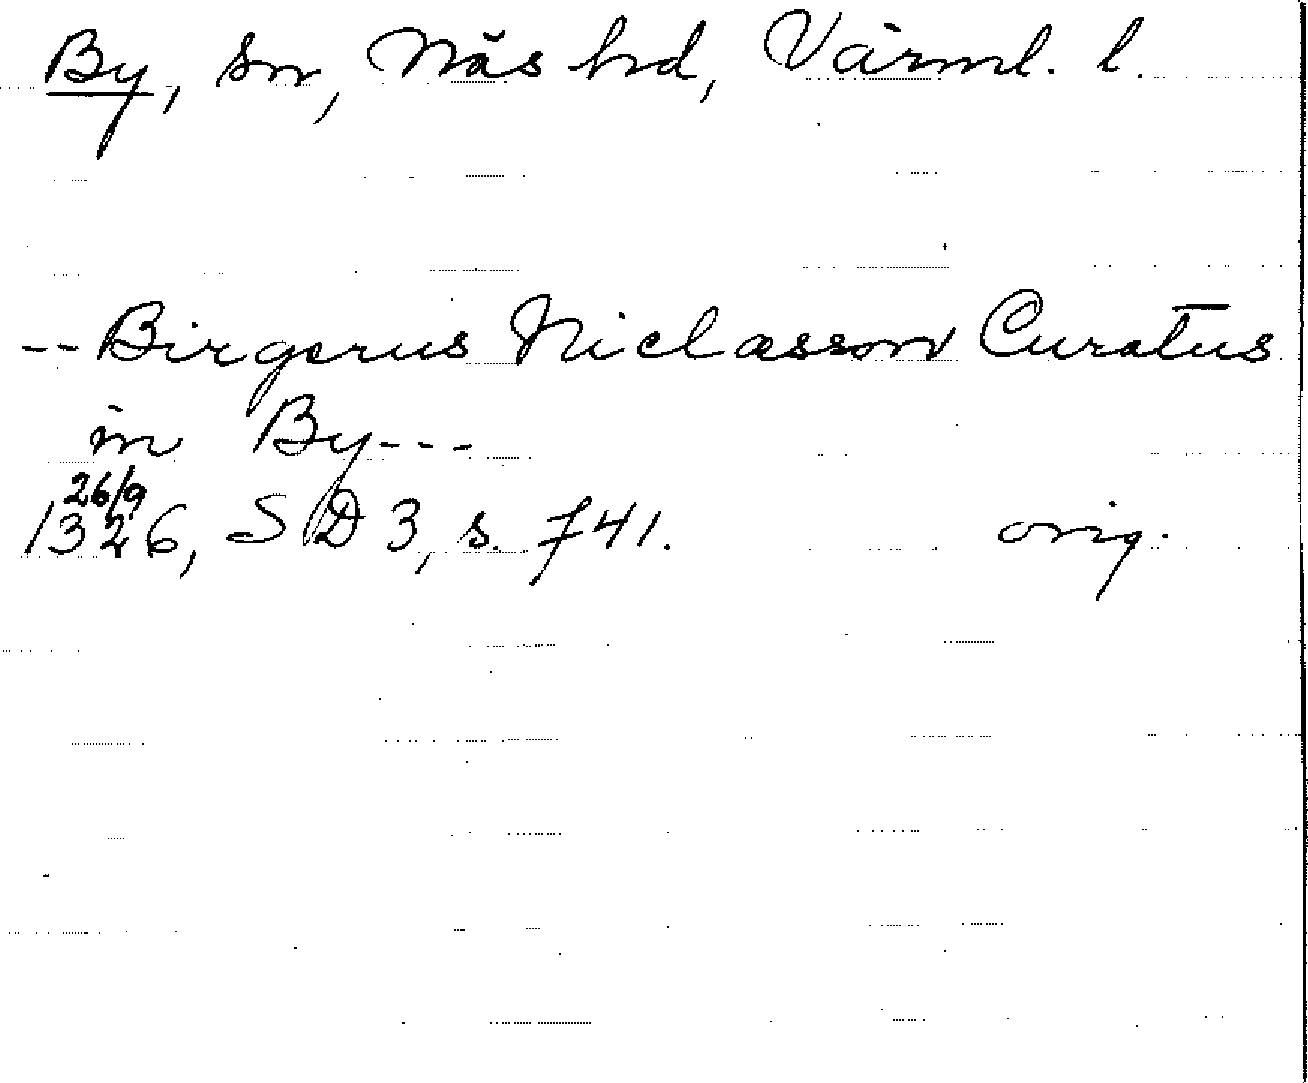 By, sn, Näs hd, Värml. l.
-- Birgerus Niclæsson Curatus
in By ---
26/9
1326, SD 3, s. 741. orig.